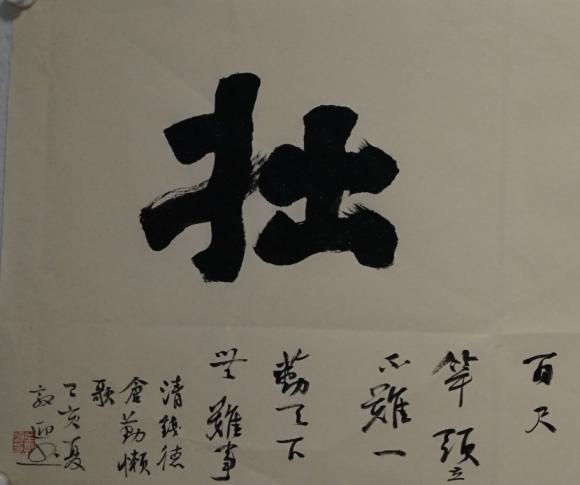 拙
百尺
竿頭立
不難一
勤天下
無難事
清錢德
倉勤懶
歌
乙亥夏